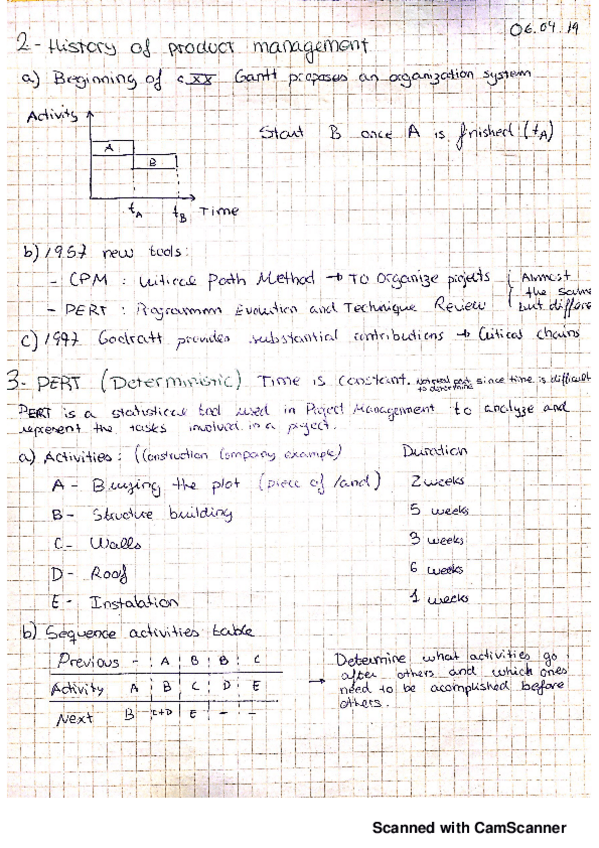 06.04.19
2- History of product management
a) Beginning of c.XX Gantt proposes an organization system
Activity
A
B
tA tB Time
Start B once A is finished (tA)
b) 1957 new tools:
- CPM : Critical Path Method → To organize projects
- PERT : Programmm Evolution and Technique Review
Almost
the same
but differe
c) 1997 Godratt provides substantial contributions → Critical chains
3- PERT (Deterministic) Time is constant. since time is difficult
to determine
PERT is a statistical tool used in Project Management to analyze and
represent the tasks involved in a project.
a) Activities: (Construction Company example) Duration
A - Buying the plot (piece of land) 2 weeks
B - Structure building 5 weeks
C - Walls 3 weeks
D - Roof 6 weeks
E - Instalation 1 weeks
b) Sequence activities table
Previous - A B B C
Activity A B C D E
Next B C+D E - -
→ Determine what activities go
after others and which ones
need to be acomplished before
others.
Scanned with CamScanner